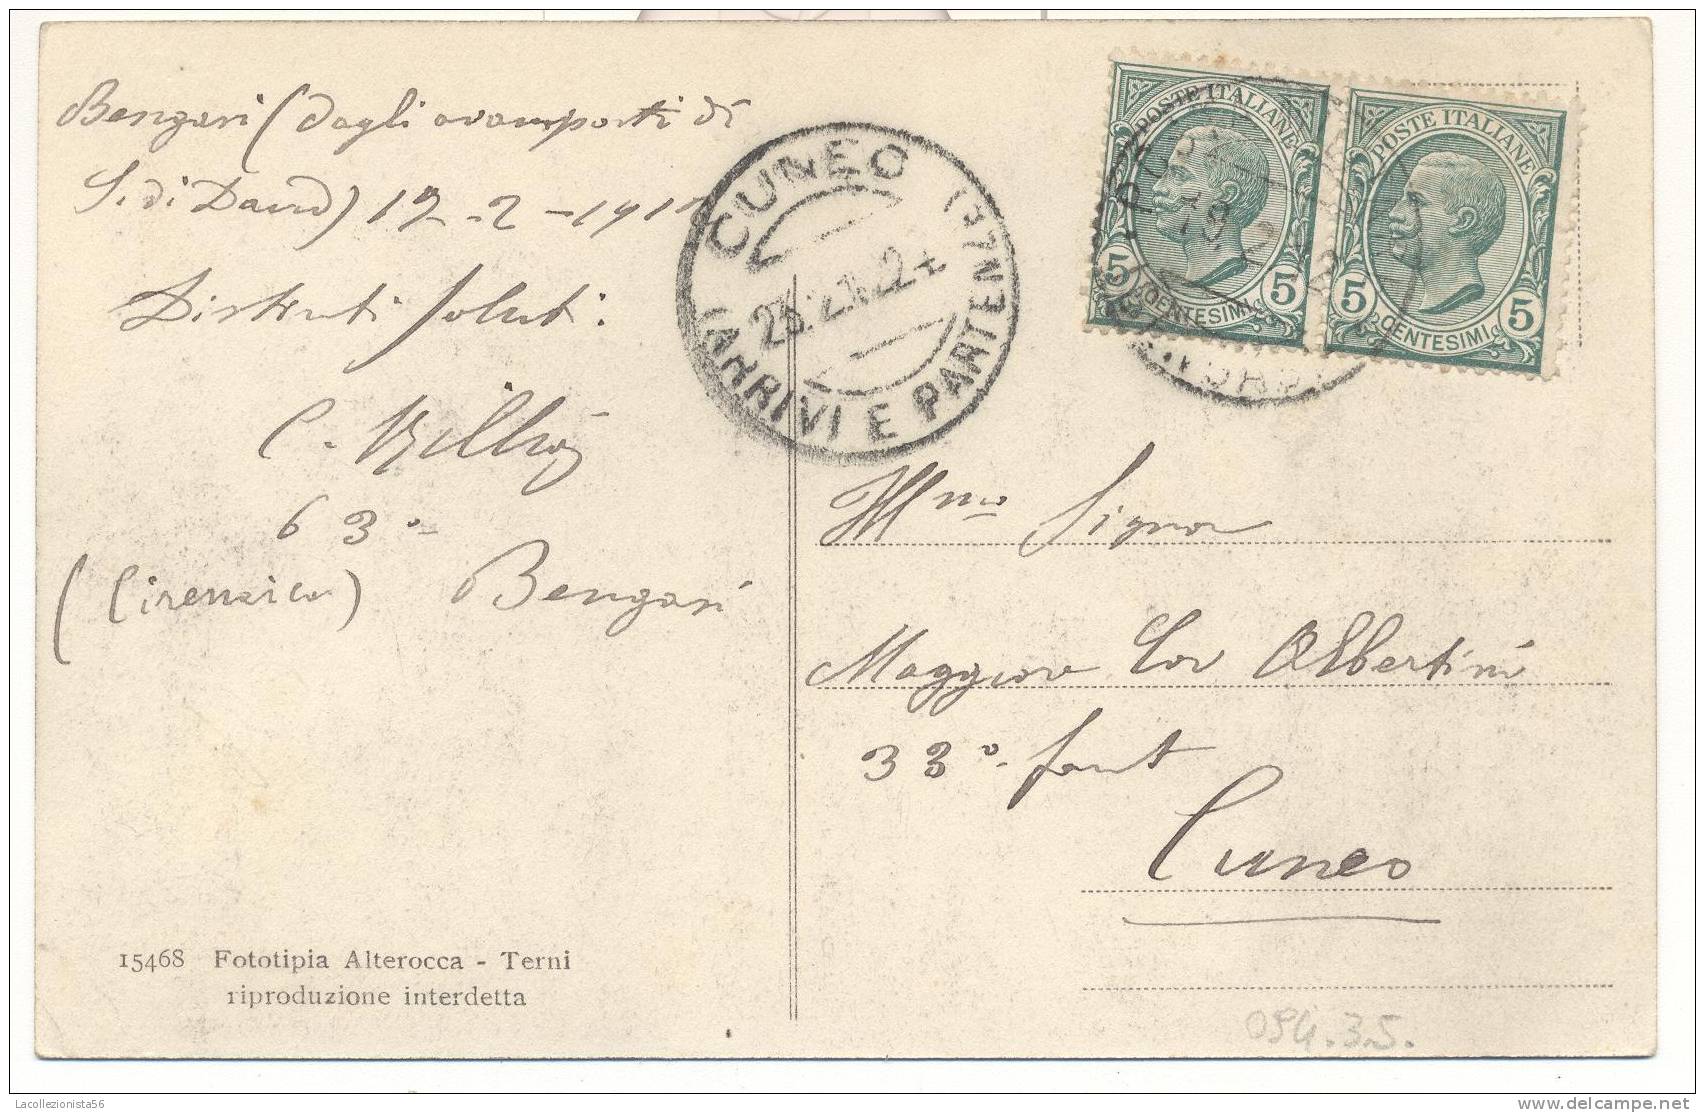 Bengasi (dagli avamposti di
S. di Daud) 19-2-191
Distinti saluti.
C.
63°
(Cirenaica) Bengasi
15468 Fototipia Alterocca - Terni
riproduzione interdetta
CUNEO
23.2.12.2
(ARRIVI E PARTENZE)
POSTE ITALIANE
5 CENTESIMI 5
POSTE ITALIANE
5 CENTESIMI 5
Ill.mo Signor
Maggiore Cav Albertini
33° fant
Cuneo
094.35.
Lacollezionista56
www.delcampe.net